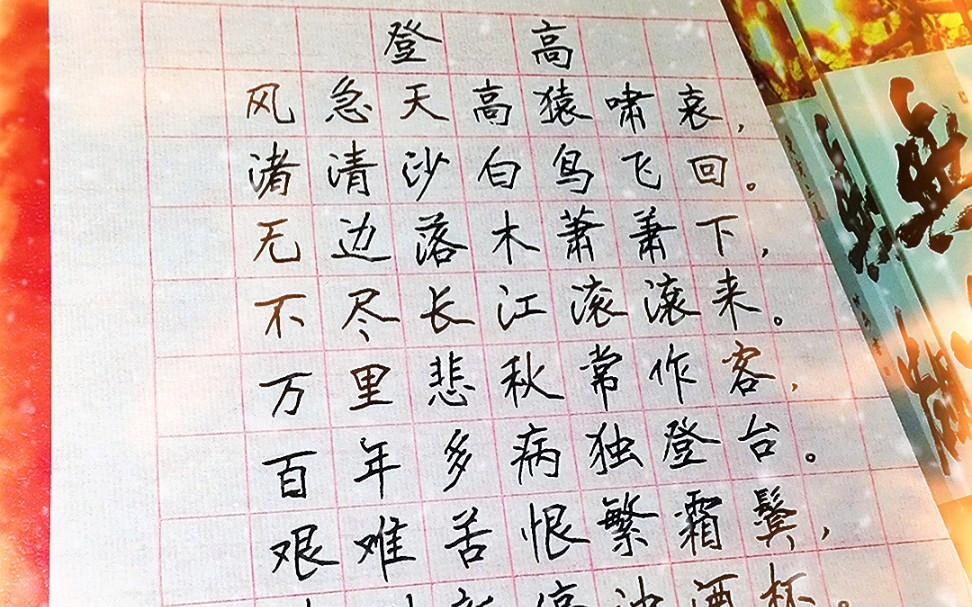 登高
风急天高猿啸哀，
渚清沙白鸟飞回。
无边落木萧萧下，
不尽长江滚滚来。
万里悲秋常作客，
百年多病独登台。
艰难苦恨繁霜鬓，
新停浊酒杯。